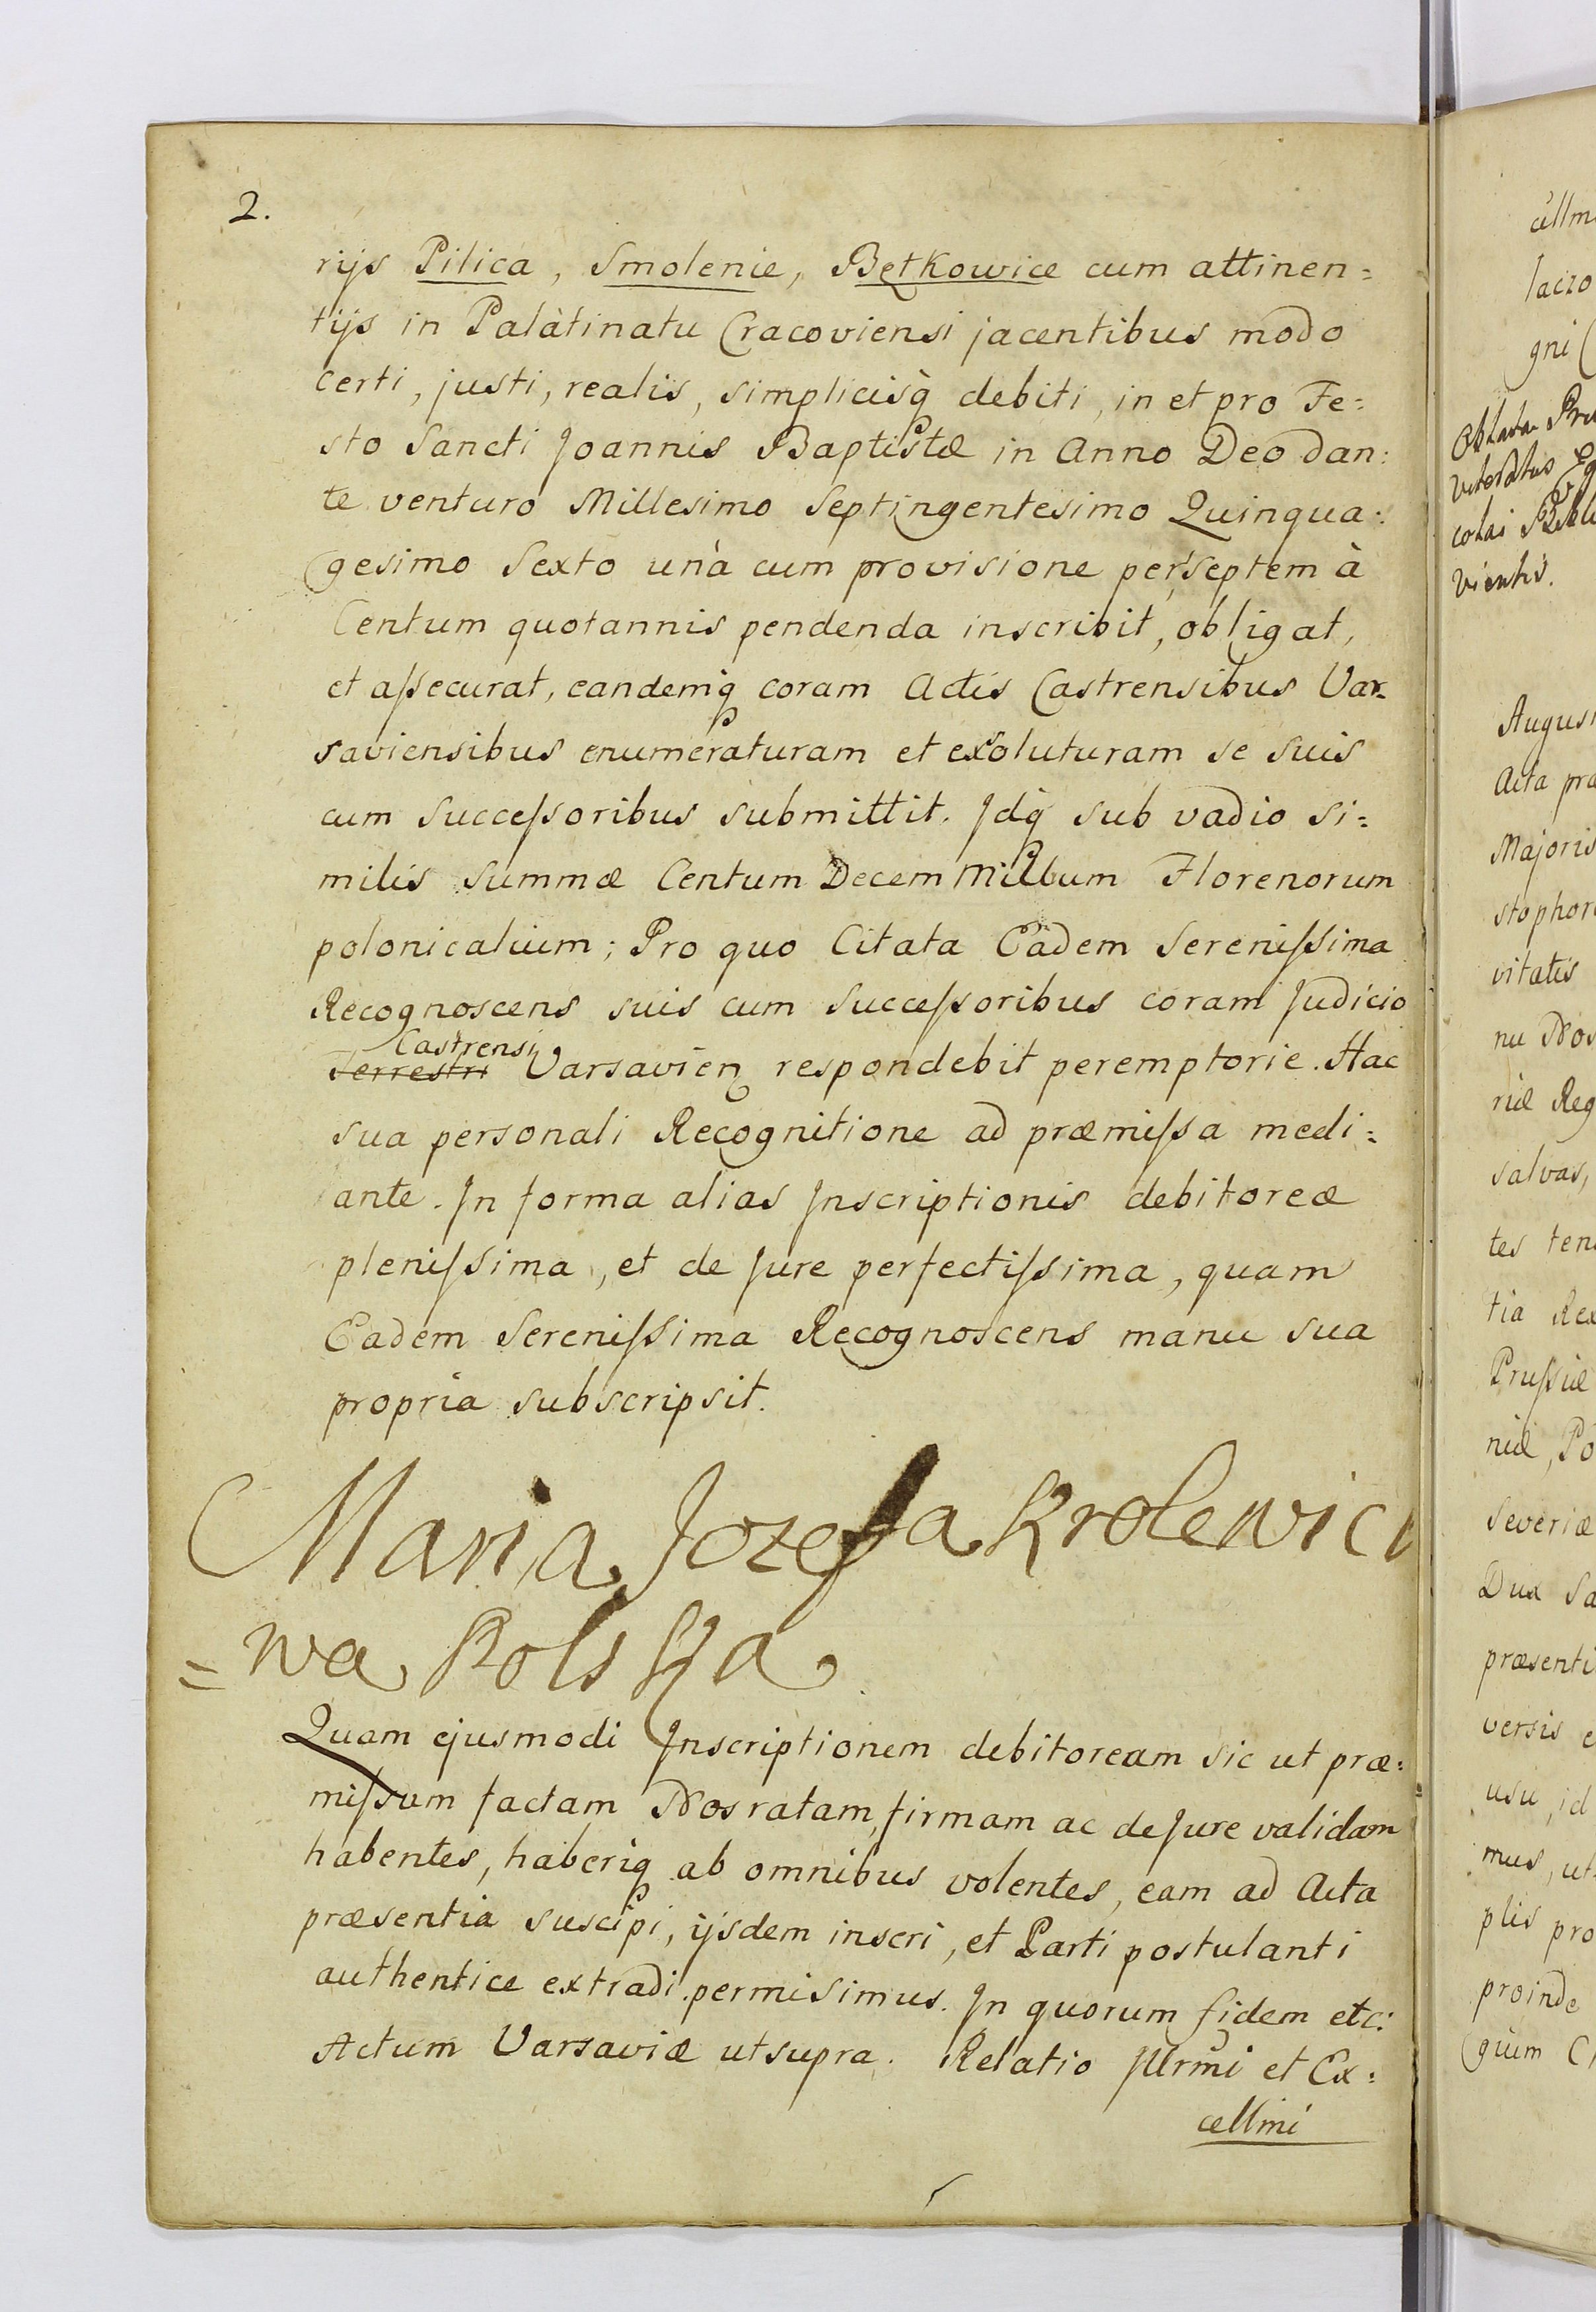 2.
rijs Pilica, Smolenie, Bętkowice cum attinen=
tijs in Palàtinatu Cracoviensi jacentibus modo
certi, justi, realis, simplicisq́ debiti, in et pro Fe=
sto Sancti Joannis Baptistæ in Anno Deo dan:
te venturo Millesimo Septingentesimo Quinqua:
gesimo Sexto unà cum provisione per septem à
Centum quotannis pendenda inscribit, obligat,
et aſsecurat, eandemq́ coram Actis Castrensibus Var=
saviensibus enumeraturam et exsoluturam se suis
cum Succeſsoribus submittit. Jdq́ sub vadio si=
milis Summæ Centum Decem Millium Florenorum
polonicalium; Pro quo Citata Eàdem Sereniſsima
Recognoscens suis cum Succeſsoribus coram Judicio
Castrensi
Terrestri Varsavien respondebit peremptorie. Hac
sua personali Recognitione ad præmiſsa medi=
ante. Jn forma alias Jnscriptionis debitoreæ
pleniſsima, et de Jure perfectiſsima, quam
Eadem Sereniſsima Recognoscens manu sua
propria subscripsit.
Maria Jozefa Krolewic
=wa Polska
Quam ejusmodi Jnscriptionem debitoream sic ut præ=
miſsum factam Nos ratam, firmam ac de Jure validam
habentes, haberiq́ ab omnibus volentes, eam ad Acta
præsentia suscipi, ijsdem inseri, et Parti postulanti
authentice extradi permisimus. Jn quorum fidem etc:
Actum Varsaviæ ut supra. Relatio Jllrmi et Ex=
cellmi
cellm
gni
Oblata
colai
vientis.
Acta
Majoris
vitatis
nu Nos
riæ Reg
salvas,
tes
tia Rex
Pruſsiæ
niæ, Po
Severiæ
Dux Sa
præsenti
versis e
usu, id
mus, ut
plis pro
proinde
gium C